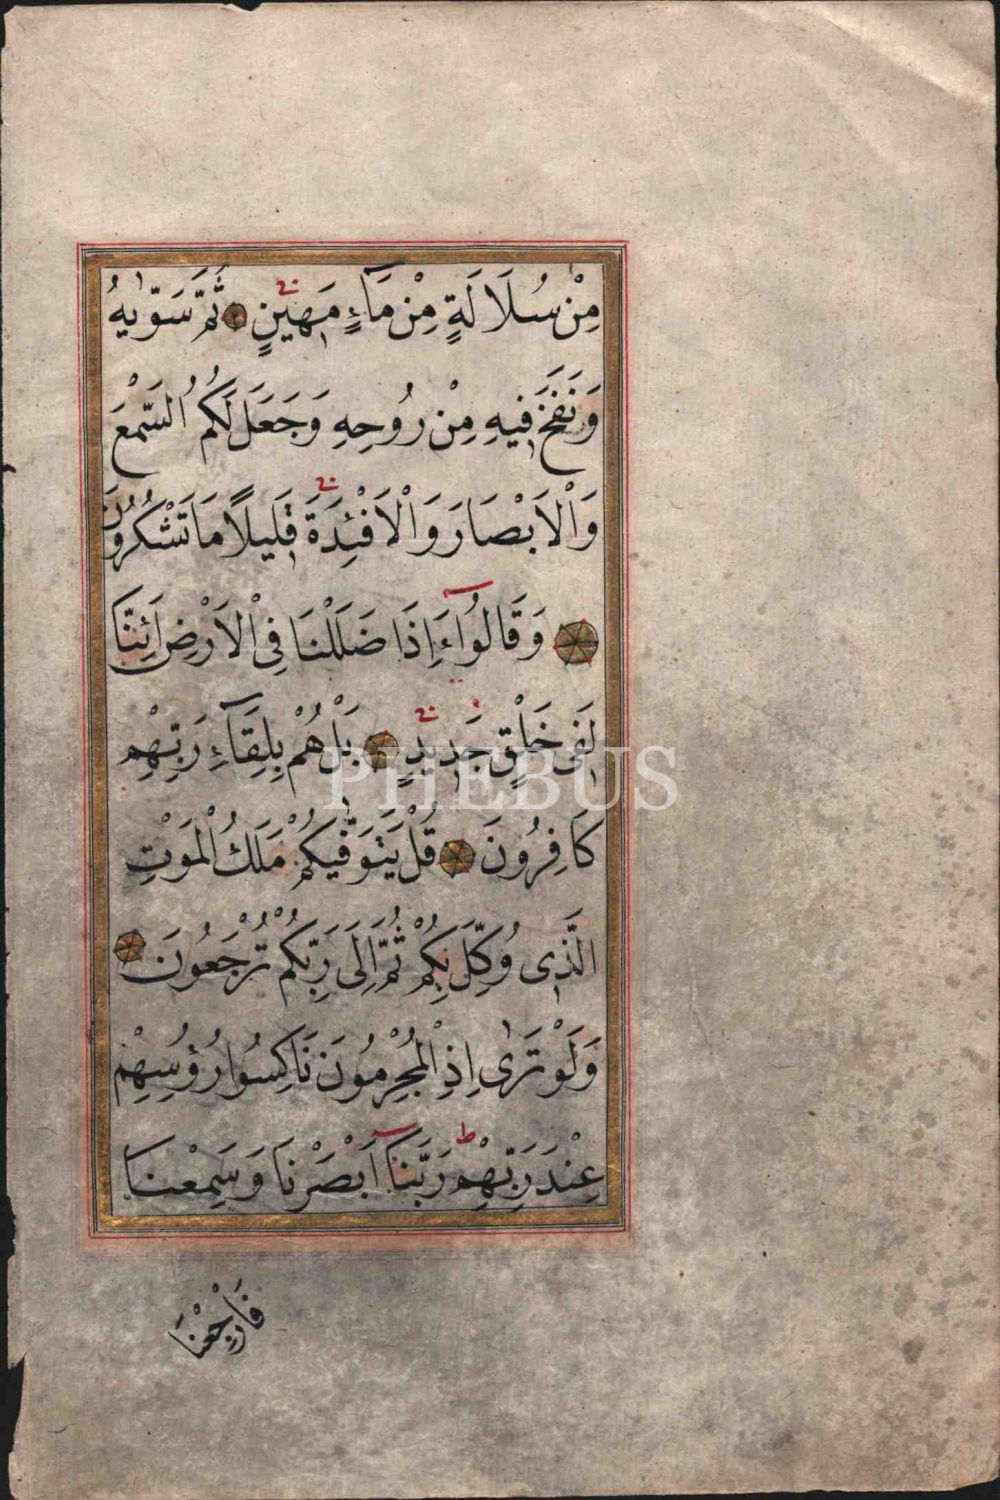 مِنْ سُلَالَةٍ مِنْ مَٓاءٍ مَهٖينٍ ثُمَّ سَوّٰيهُ
وَنَفَخَ فٖيهِ مِنْ رُوحِهِ وَجَعَلَ لَكُمُ السَّمْعَ
وَالْاَبْصَارَ وَالْاَفْئِدَةَ قَلٖيلًا مَا تَشْكُرُونَ
وَقَالُٓوا ءَاِذَا ضَلَلْنَا فِى الْاَرْضِ ائِنَّا
لَفٖى خَلْقٍ جَدٖيدٍ بَلْ هُمْ بِلِقَٓاءِ رَبِّهِمْ
كَافِرُونَ قُلْ يَتَوَفّٰيكُمْ مَلَكُ الْمَوْتِ
الَّذٖى وُكِّلَ بِكُمْ ثُمَّ اِلَى رَبِّكُمْ تُرْجَعُونَ
وَلَوْ تَرٰى اِذِ الْمُجْرِمُونَ نَاكِسُوا رُؤُسِهِمْ
عِنْدَ رَبِّهِمْ ط رَبَّنَٓا اَبْصَرْنَا وَسَمِعْنَا
فَارْجِعْنَا
PHEBUS